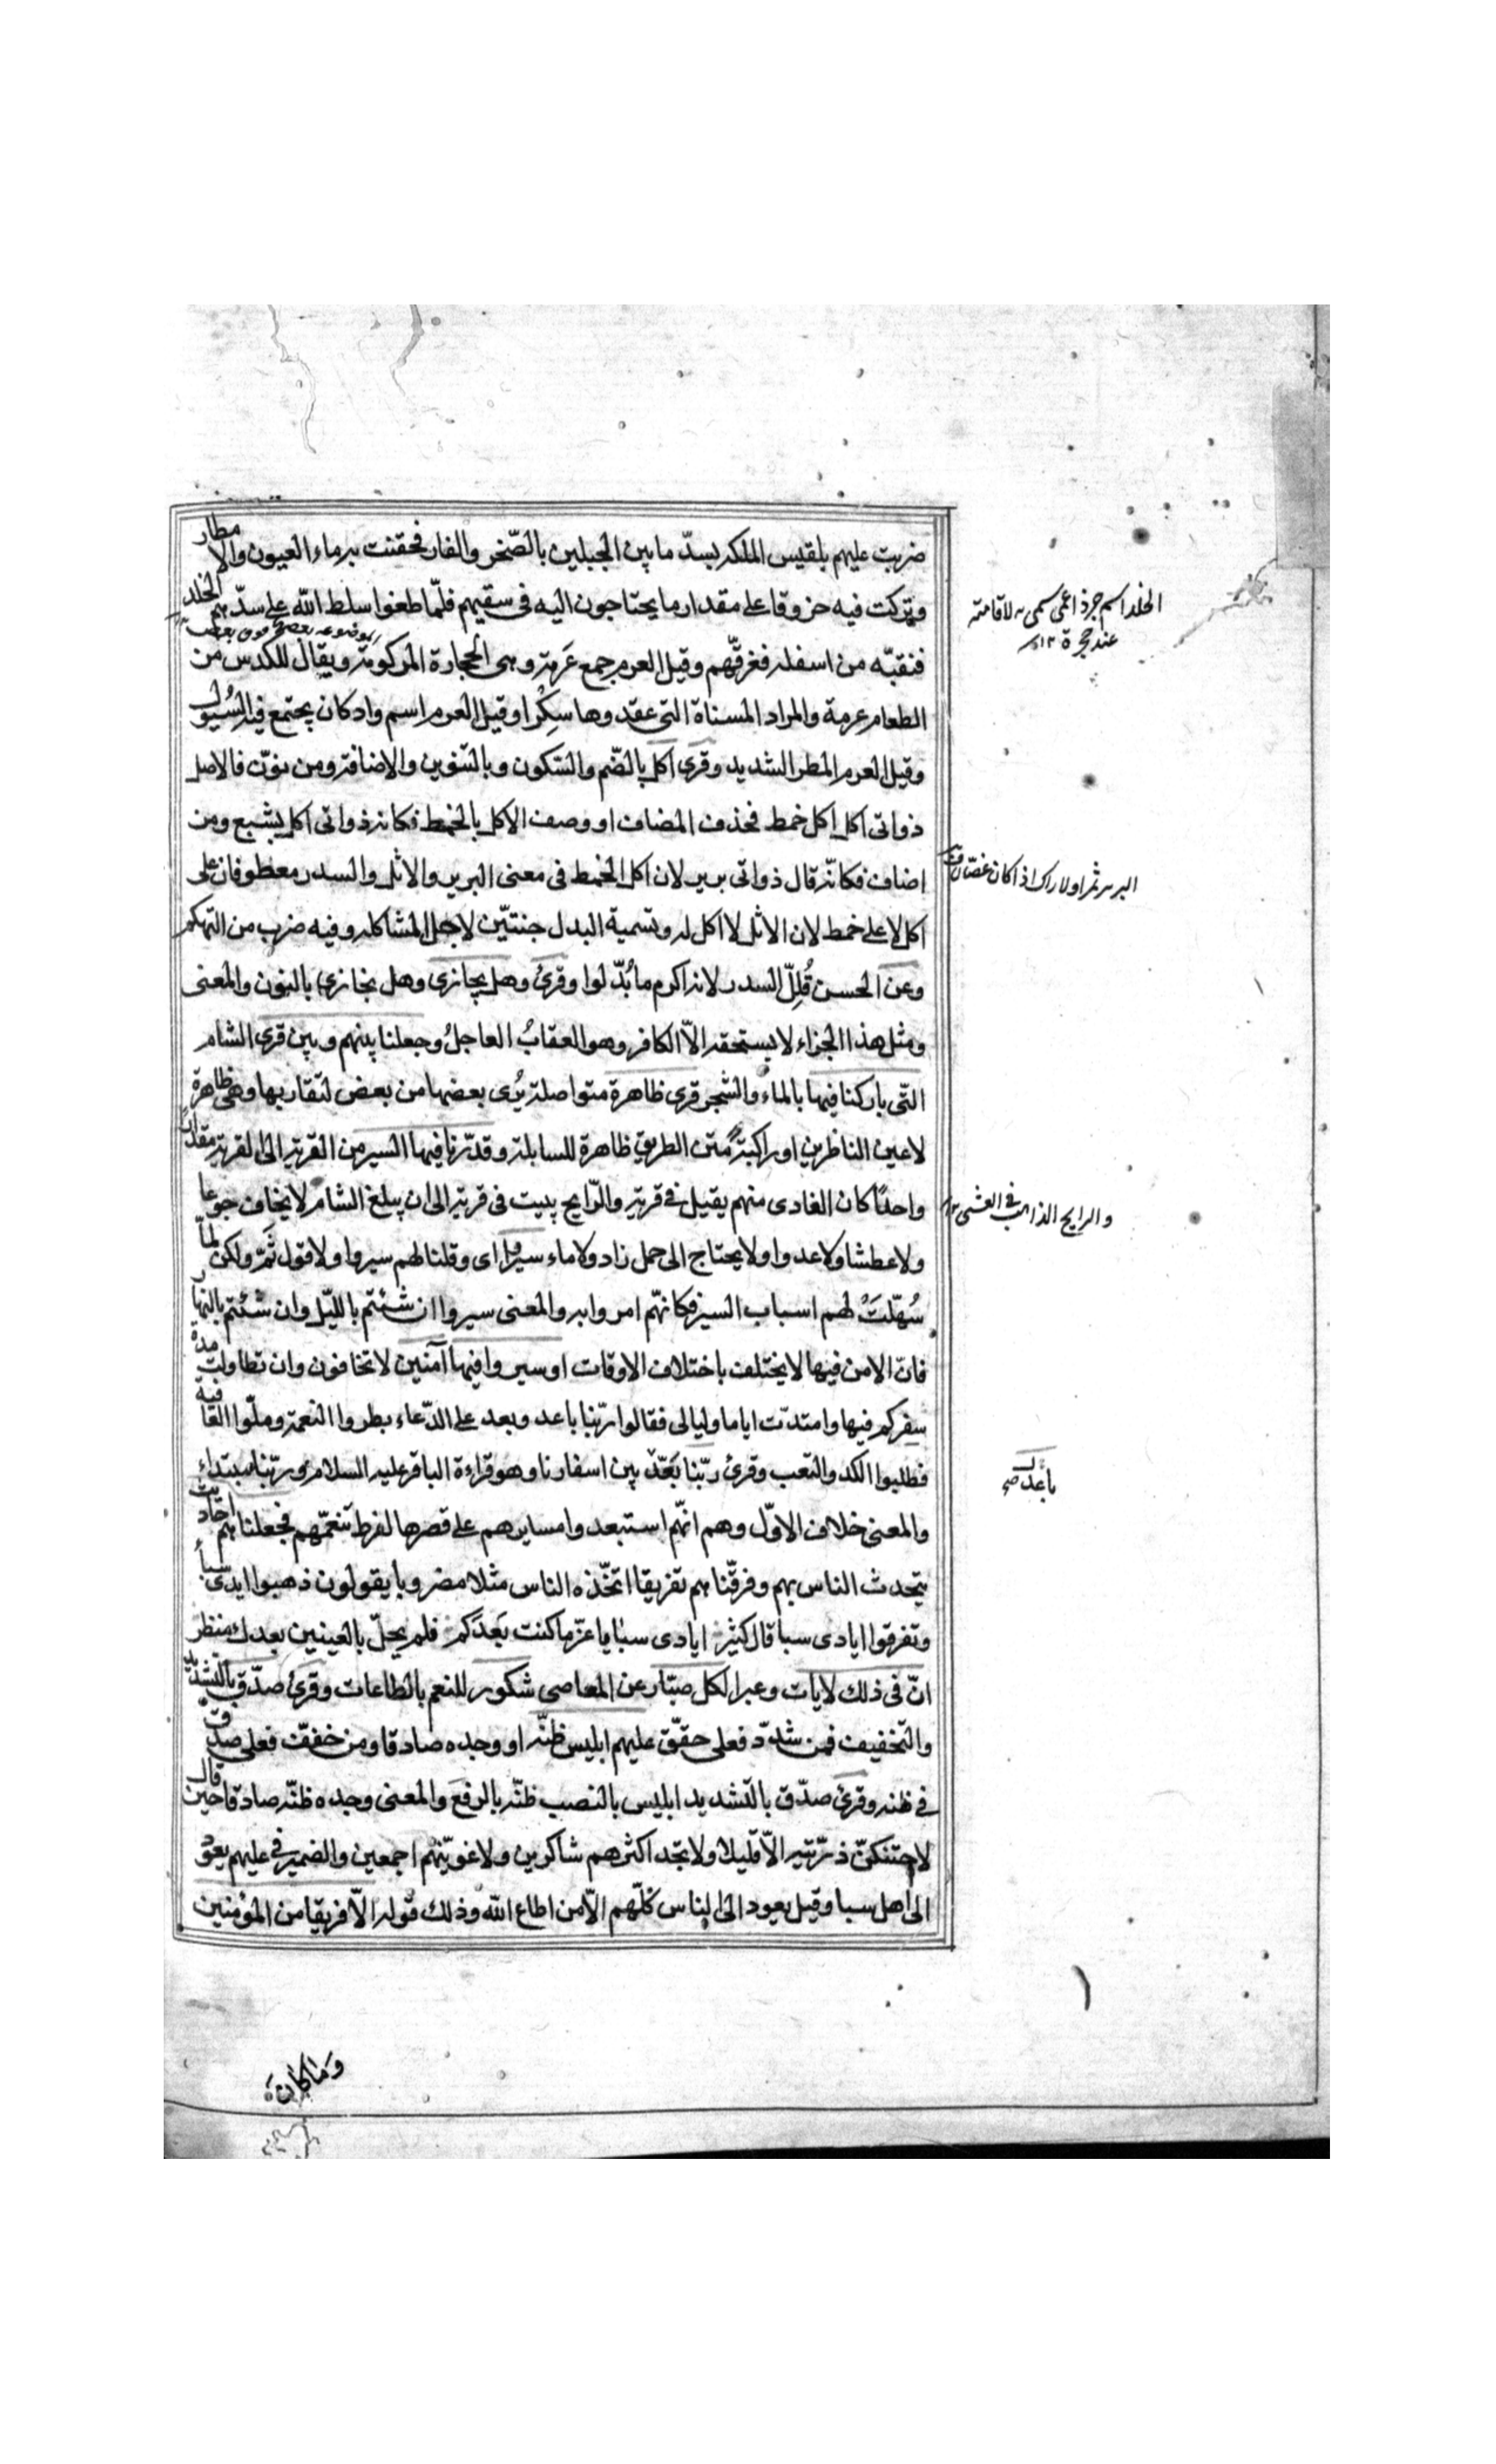 ضربت عليهم بلقيس الملكه بسدّ ما بين الجبلين بالصّخر والقار فحقنت به ماء العيون والامطار
وتركت فيه خروقا على مقدار ما يحتاجون اليه فى سقيهم فلمّا طغوا سلط الله على سدّهم الخلد
فنقبّه من اسفله فغرقّهم وقيل العرم جمع عَرِمة وهى الحجارة المركومة ويقال للكدس من
الموضوعه بعضها فوق بعض
الطعام عرمة والمراد المسناة التى عقدوها سِكْرا وقيل العرم اسم واد كان يجتمع فيه السُيول
وقيل العرم المطر الشديد وقرى اكل بالضّم والسّكون وبالتنوين والاضافة ومن نوّن فالاصل
ذواتى اكل اكل خمط فحذف المضاف او وصف الاكل بالخمط فكانه ذواتى اكل بشع ومن
اضاف فكانّه قال ذواتى برير لان اكل الخمط فى معنى البرير والاثل والسدر معطوفان على
اكل لا على خمط لان الاثل لا اكل له وتسمية البدل جنتيّن لاجل المشاكله وفيه ضرب من التهكم
وعن الحسن قُلِلّ السدر لانه اكرم ما بُدّلوا وقرئ وهل يجازى وهل نجازى بالنون والمعنى
ومثل هذا الجزاء لا يستحقه الاّ الكافر وهو العقابُ العاجلُ وجعلنا بينهم وبين قرى الشام
التى باركنا فيها بالماء والشجر قرى ظاهرة متواصلة يُرى بعضها من بعض لتقاربها وهى ظاهرة
لاعين الناظرين او راكبةً متن الطريق ظاهرة للسابلة وقدّرنا فيها السير من القرية الى القرية مقدارًا
واحدًا كان الغادى منهم يقيل فى قرية والرّايح يبيت فى قرية الى ان يبلغ الشام لا يخاف جوعا
ولا عطشا ولا عدوا ولا يحتاج الى حمل زاد ولا ماء سيروا اى وقلنا لهم سيروا ولا قول ثَمّ ولكن لمّا
سُهّلَتْ لهم اسباب السير فكانهّم امروا به والمعنى سيروا ان شئتم بالليّل وان شئتم بالنهار
فانّ الامن فيها لا يختلف باختلاف الاوقات او سيروا فيها آمنين لا تخافون وان تطاولت مدة
سفركم فيها وامتدّت اياما وليالى فقالوا ربّنا باعد وبعد على الدّعاء بطروا النعمة وملّوا العافية
فطلبوا الكد والتعب وقرئ ربّنا بَعَّدَ بين اسفارنا وهو قراءة الباقر عليه السلام وربّنا بابتداء
والمعنى خلاف الاوّل وهم انهّم استبعدوا مسايرهم على قصرها لفرط تنعمّهم فجعلناهم احاديث
يتحدث الناس بهم وفرقّناهم تفريقا اتخّذه الناس مثلا مضروبا يقولون ذهبوا ايدى سبأ
وتفرقوا ايادى سبا قال كثير ايادى سبا يا عزّ ما كنت بَعدَكم فلم يحلّ بالعينين بعدك منظر
انّ فى ذلك لايات وعبرا لكل صبّار عن المعاصى شكور للنعم بالطاعات وقرئ صدّق بالتشديد
والتخفيف فمن شدّد فعلى حقّق عليهم ابليس ظنّه او وجده صادقا ومن خففّ فعلى صدق
فى ظنه وقرئ صدّق بالتشديد ابليس بالنصب ظنّه بالرفع والمعنى وجده ظنّه صادقا حين قال
لاحتنكنّ ذرّيته الاّ قليلا ولا تجد اكثرهم شاكرين ولاغوينّهم اجمعين والضمير فى عليهم يعود
الى اهل سبا وقيل يعود الى الناس كلّهم الاّ من اطاع الله وذلك قوله الاّ فريقا من المؤمنين
الخلد اسم جرذ اعمى سمى به لاقامته
عند حجرة ١٢
البرير ثمر اول اراك اذا كان غضّا
والرايح الذاهب فى العشى
باعَدَ صح
وماكان